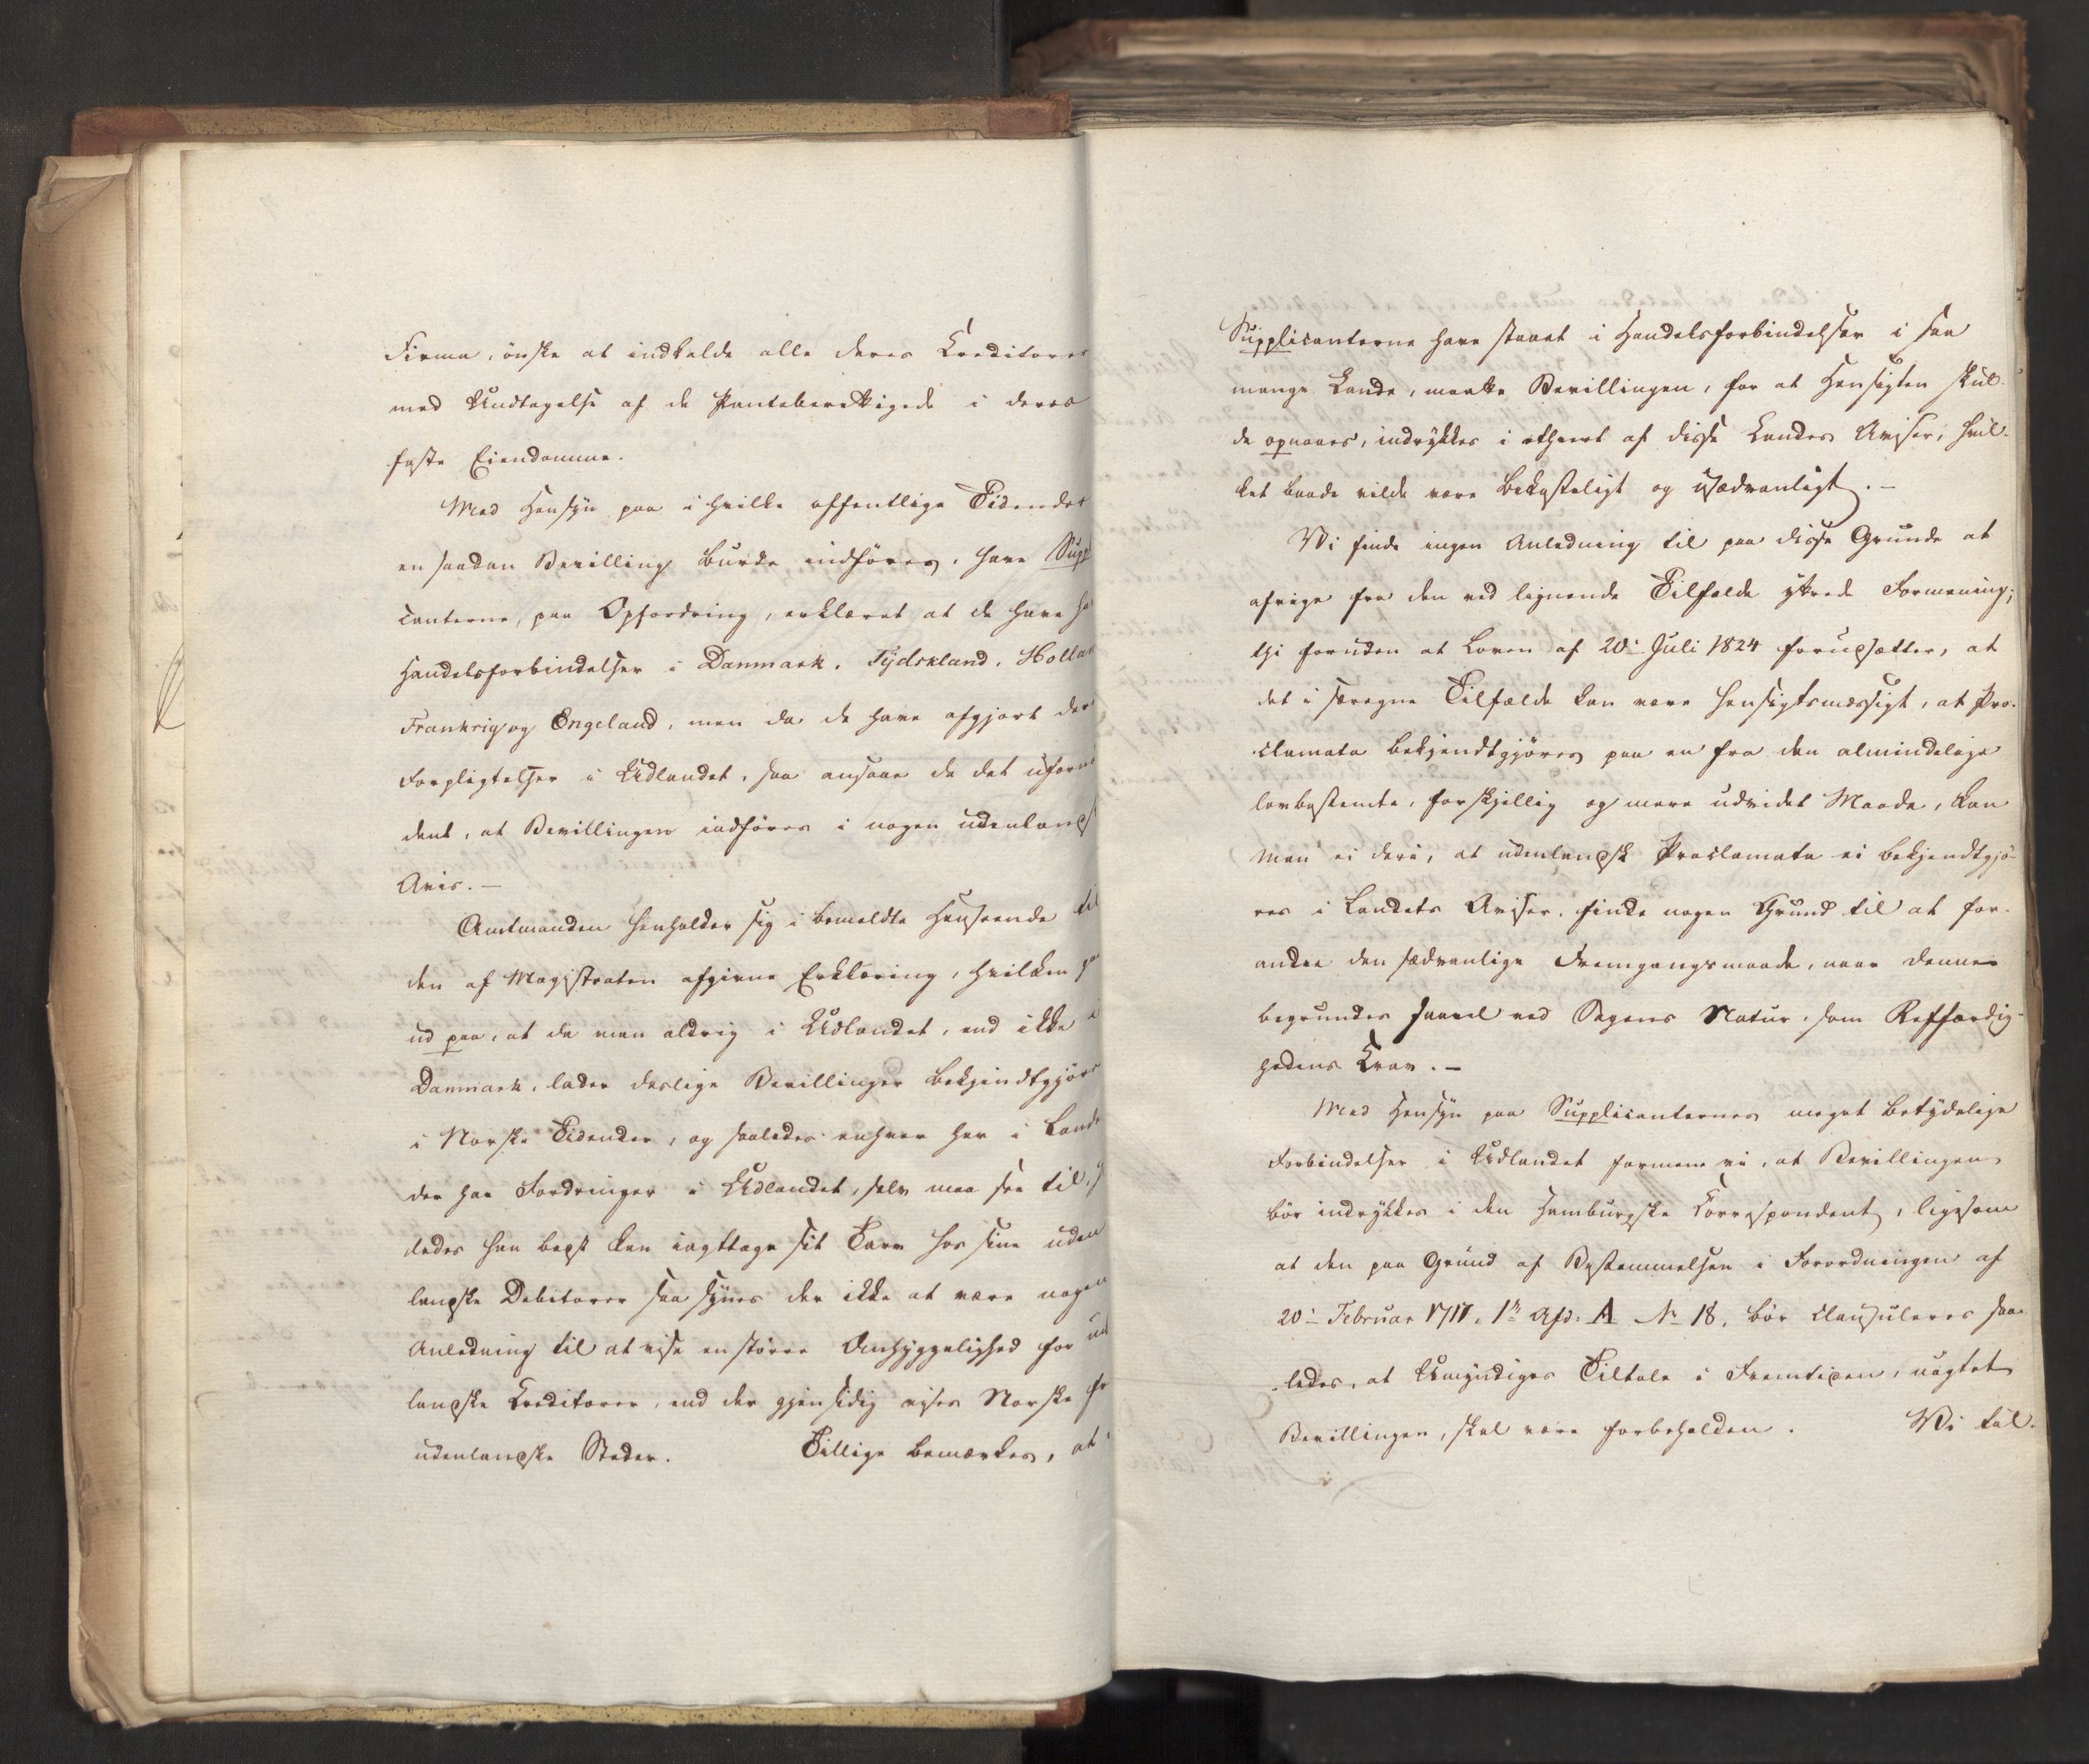 Firma, önske at indkalde alle deres Creditorer
med Undtagelse af de Panteberettigede i deres
faste Eiendomme.
Med Hensyn paa i hvilke offentlige Tidender
en saadan Bevilling burde indføres, have Suppl
canterne, paa Opfordring, erklæret at de have ha
Handelsforbindelser i Danmark, Tydskland, Hollan
Frankrig og Engeland, men da de have afgjort der
Forpligtelser i Udlandet, saa ansaae de det uforn
dent, at Bevillingen indføres i nogen udenlandsk
Avis. —
Amtmanden henholder sig i bemeldte Henseende til
den af Magistraten afgivne Erklæring, hvilken ga
ud paa, at da man aldrig i Udlandet, end ikke i
Danmark, lader deslige Bevillinger bekjendtgjøre
i Norske Tidender, og saaledes enhver her i Lande
der har Fordringer i Udlandet, selv maa see til,
ledes han bedst kan iagttage sit Tarv hos sine uden
landske Debitorer saa synes der ikke at være nogen
Anledning til at vise en større Omhyggelighed for ud
landske Creditorer, end der gjensidig vises Norske fr
udenlandske Steder. Tillige bemærkes, at
Supplicanterne have staaet i Handelsforbindelser i saa
mange Lande, maatte Bevillingen, for at Hensigten skul-
de opnaaes, indrykkes i ethvert af disse Landes Aviser, hvil-
ket baade vilde være bekosteligt og usædvanligt. —
Vi finde ingen Anledning til paa disse Grunde at
afvige fra den ved lignende Tilfælde yttrede Formening;
thi foruden at Loven af 20de Juli 1824 forudsætter, at
det i særegne Tilfælde kan være hensigtsmæssigt, at Pro-
clamata bekjendtgjøres paa en fra den almindelige
lovbestemte, forskjellig og mere udvidet Maade, kan
man ei deri, at udenlandsk Proclamata ei bekjendtgjø-
res i Landets Aviser, finde nogen Grund til at for-
andre den sædvanlige Fremgangsmaade, naar denne
begrundes saavel ved Sagens Natur, som Retfærdig-
hedens Krav. —
Med Hensyn paa Supplicanternes meget betydelige
Forbindelser i Udlandet formene vi, at Bevillingen
bör indrykkes i den Hamburgske Correspondent, ligesom
at den paa Grund af Bestemmelsen i Forordningen af
20de Februar 1717, 1ste Afd: A No 18, bör clausuleres saa-
ledes, at Umyndiges Tiltale i Fremtiden, uagtet
Bevillingen, skal være forbeholden. Vi til-